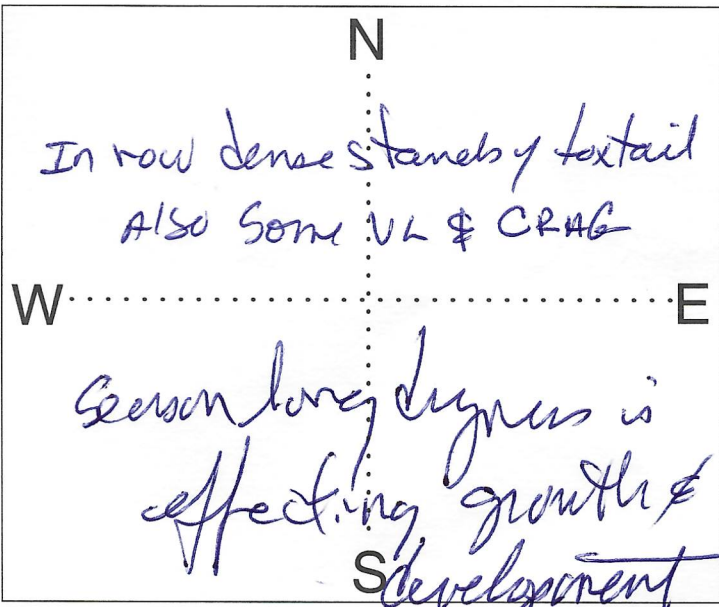 N
In row dense stands of foxtail
Also Some VL & CRAG
W E
Season long dryness is
effecting growth &
S development